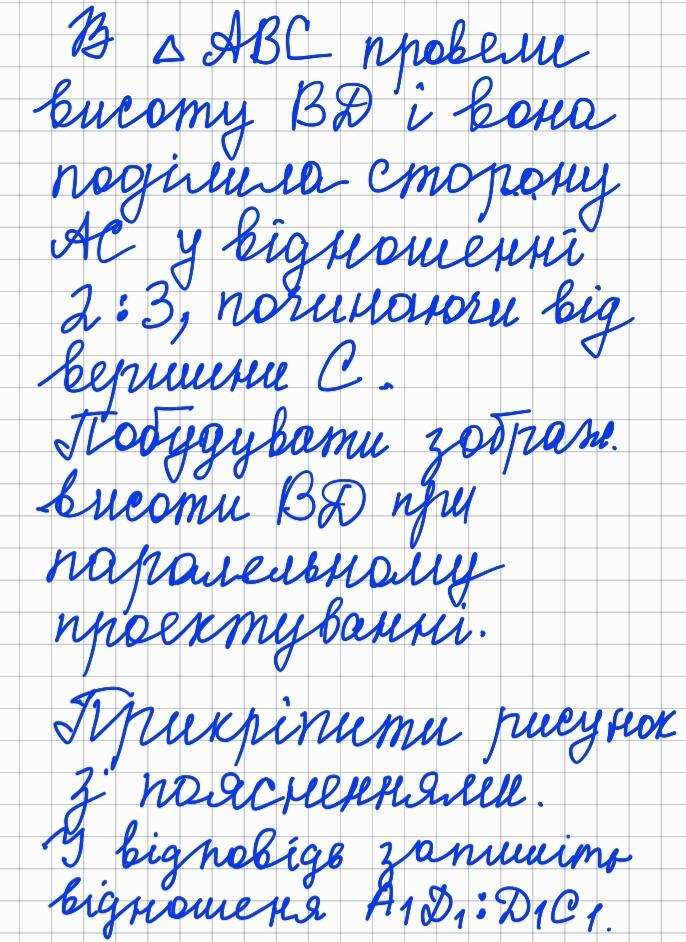 В △ ABC провели
висоту BD і вона
поділила сторону
AC у відношенні
2:3, починаючи від
вершини C.
Побудувати зображ.
висоти BD при
паралельному
проєктуванні.
Прикріпити рисунок
з поясненнями.
У відповідь запишіть
відношеня A₁D₁:D₁C₁.